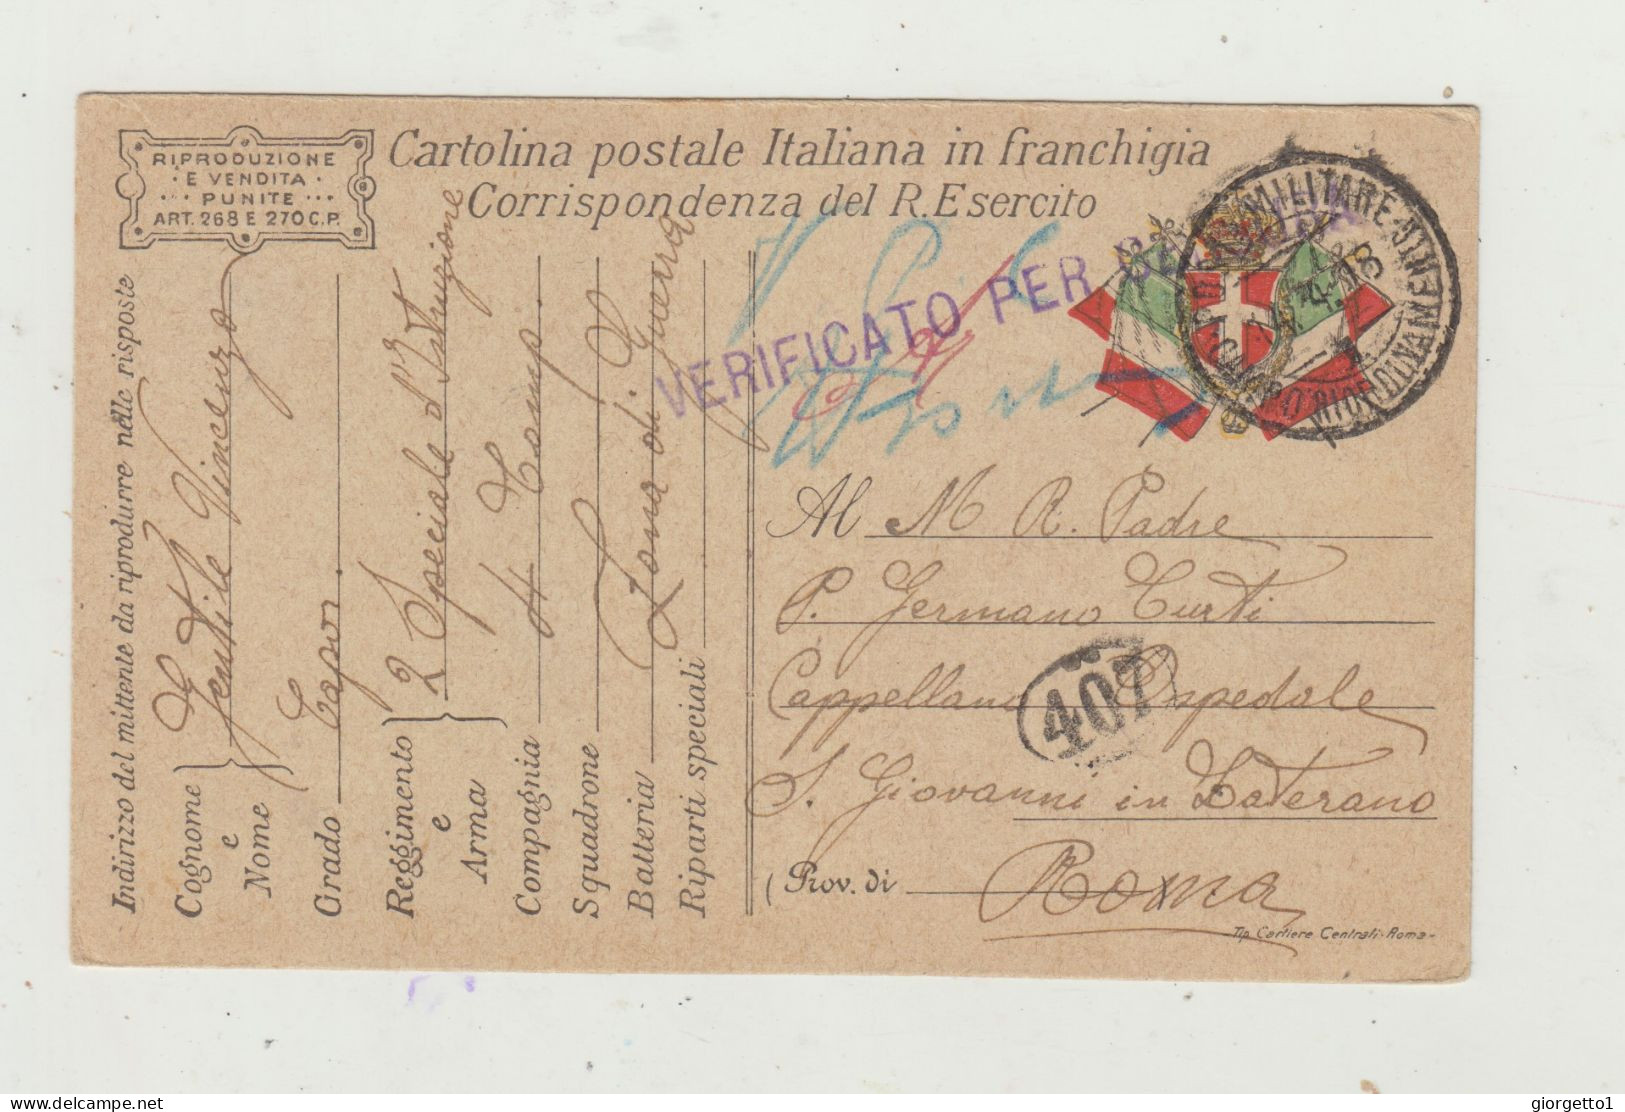 RIPRODUZIONE
· E VENDITA ·
··· PUNITE ···
ART. 268 E 270 C.P.
Cartolina postale Italiana in franchigia
Corrispondenza del R. Esercito
VERIFICATO PER
MILITARE
18
Indirizzo del mittente da riprodurre nelle risposte
Cognome e Nome Gentile Vincenzo
Grado Capor.
Reggimento e Arma 2 Speciale d'Istruzione
Compagnia 4 Comp.
Squadrone
Batteria Zona di Guerra
Riparti speciali
Al M R. Padre
P. Germano Curti
Cappellano Ospedale
407
S. Giovanni in Laterano
(Prov. di Roma)
Tip. Cartiere Centrali-Roma-
delcampe.net
giorgetto1